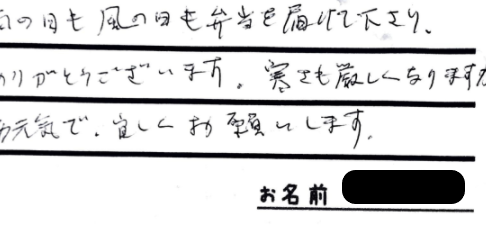 の日も風の日も弁当を届けて下さり、
りがとうございます。寒さも厳しくなりますが
元気で、宜しくお願いします。
お名前